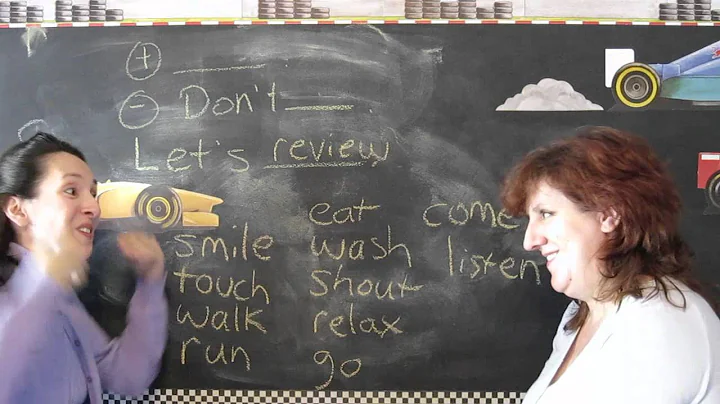 ⊕ ______
⊖ Don't ______
Let's review
eat come
smile wash listen
touch shout
walk relax
run go